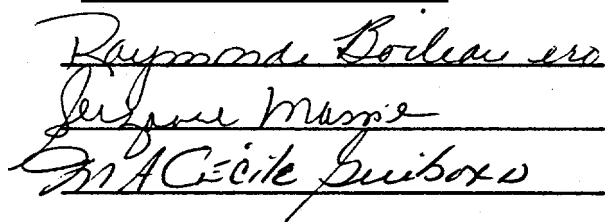 Raymonde Boileau
Massie
M A Cécile Guibord